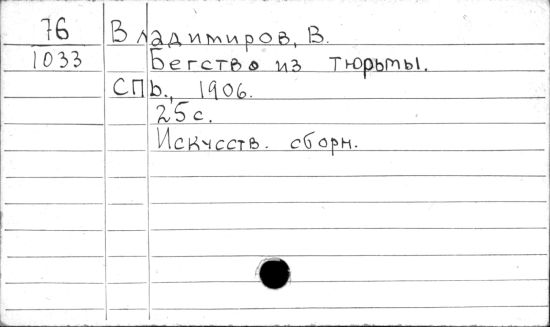 76 Владимиров, В.
1033 Бегство из тюрьмы.
СПЬ., 1906.
25 с.
Искусств. сборн.